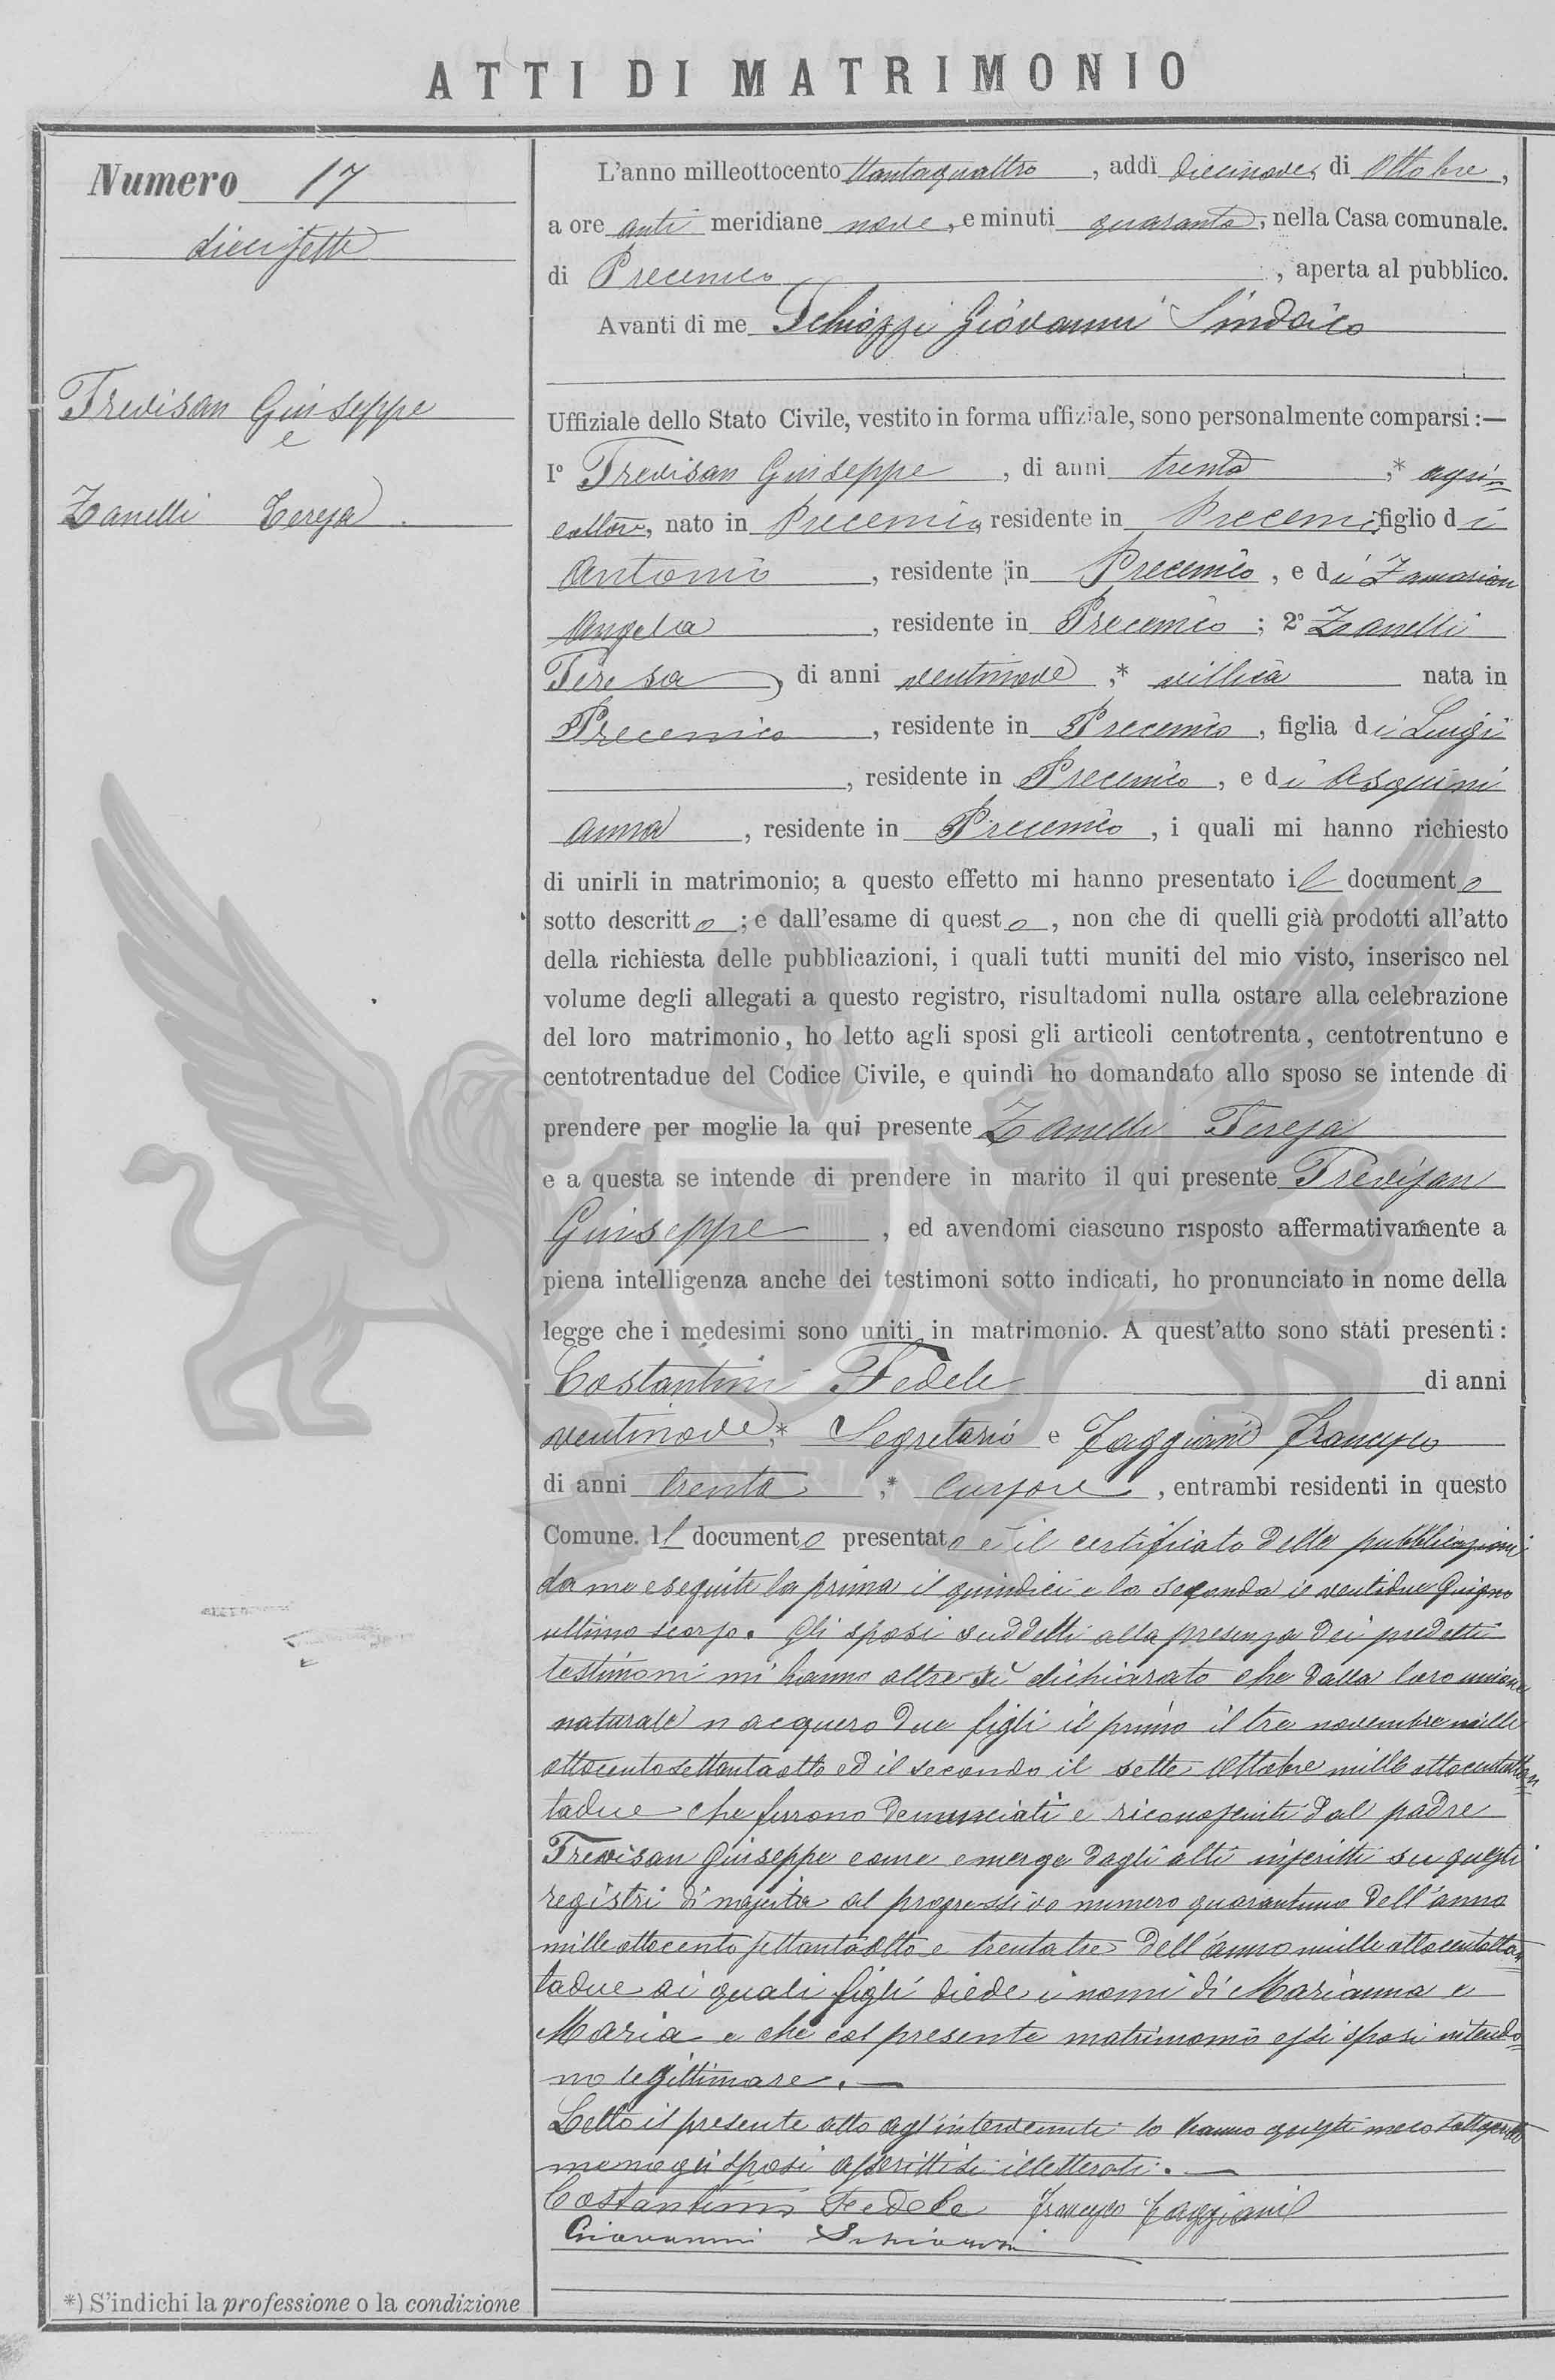 ATTI DI MATRIMONIO
Numero 17
diecisette
Trevisan Giuseppe
e
Zanelli Teresa
L'anno milleottocento ttantaquattro, addì diecinove, di Ottobre,
a ore anti meridiane nove, e minuti quaranta, nella Casa comunale.
di Precenico, aperta al pubblico.
Avanti di me Schiozzi Giovanni Sindaco
Uffiziale dello Stato Civile, vestito in forma uffiziale, sono personalmente comparsi :—
1º Trevisan Giuseppe, di anni trenta,* agri=
coltore, nato in Precenico, residente in Precenico, figlio di
Antonio, residente in Precenico, e di Zamarian
Angela, residente in Precenico; 2º Zanelli
Teresa, di anni ventinove,* villica nata in
Precenico, residente in Precenico, figlia di Luigi
, residente in Precenico, e di Asquini
Anna, residente in Precenico, i quali mi hanno richiesto
di unirli in matrimonio; a questo effetto mi hanno presentato il documento
sotto descritto; e dall'esame di questo, non che di quelli già prodotti all'atto
della richiesta delle pubblicazioni, i quali tutti muniti del mio visto, inserisco nel
volume degli allegati a questo registro, risultadomi nulla ostare alla celebrazione
del loro matrimonio, ho letto agli sposi gli articoli centotrenta, centotrentuno e
centotrentadue del Codice Civile, e quindi ho domandato allo sposo se intende di
prendere per moglie la qui presente Zanelli Teresa
e a questa se intende di prendere in marito il qui presente Trevisan
Giuseppe, ed avendomi ciascuno risposto affermativamente a
piena intelligenza anche dei testimoni sotto indicati, ho pronunciato in nome della
legge che i medesimi sono uniti in matrimonio. A quest'atto sono stati presenti:
Costantini Fedele di anni
ventinove,* Segretario e Faggiani Francesco
di anni trenta,* Cursore, entrambi residenti in questo
Comune. Il documento presentato è il certificato delle pubblicazioni
da me eseguite la prima il quindici e la seconda il ventidue Giugno
ultimo scorso. Gli sposi suddetti alla presenza dei predetti
testimoni mi hanno altresì dichiarato che dalla loro unione
naturale nacquero due figli il primo il tre novembre mille
ottocentosettantaotto ed il secondo il sette Ottobre mille ottocentottan=
tadue che furono denunciati e riconosciuti dal padre
Trevisan Giuseppe come emerge dagli atti inscritti su questi
registri di nascita al progressivo numero quarantuno dell'anno
mille ottocento settantaotto e trentatre dell'anno mille ottocentottan=
tadue ai quali figli diede i nomi di Marianna e
Maria e che col presente matrimonio essi sposi intendo=
no legittimare. —
Letto il presente atto agl'intervenuti lo hanno questi meco sottoscritto
meno gli sposi asserittisi illetterati. —
Costantini Fedele Francesco Faggiani
Giovanni Schiozzi
*) S'indichi la professione o la condizione